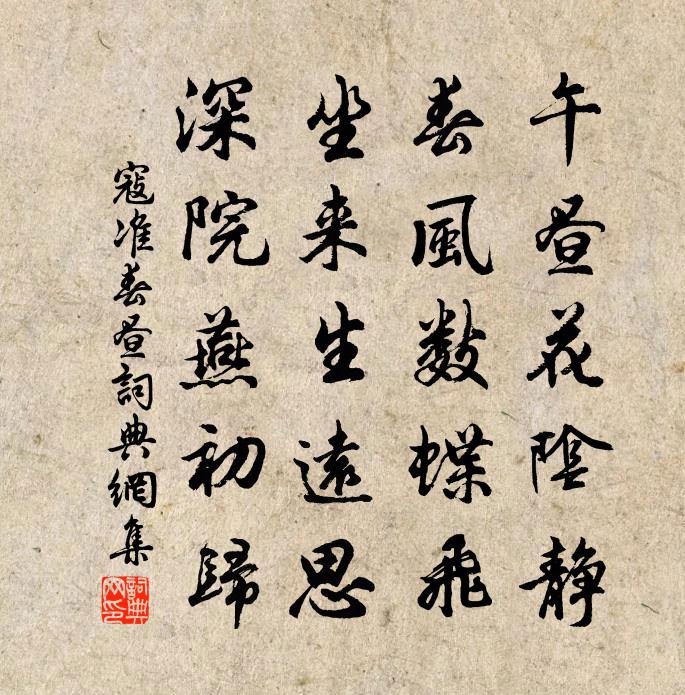 午昼花陰静
春風數蝶飛
坐来生遠思
深院燕初歸
寇准春昼詞典網集
詞典网印